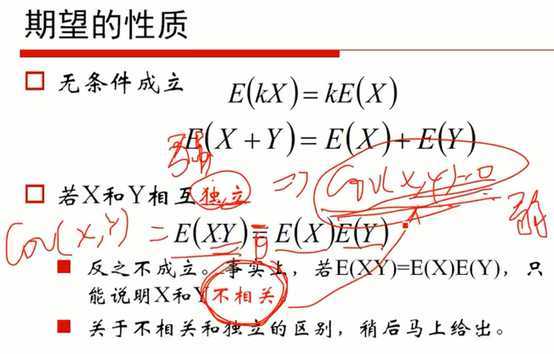 期望的性质
无条件成立
E(kX)=kE(X)
E(X+Y)=E(X)+E(Y)
若X和Y相互独立 ⇒ Cov(X,Y)=0
Cov(X,Y) = E(XY)=E(X)E(Y)
反之不成立。事实上，若E(XY)=E(X)E(Y)，只
能说明X和Y不相关
关于不相关和独立的区别，稍后马上给出。